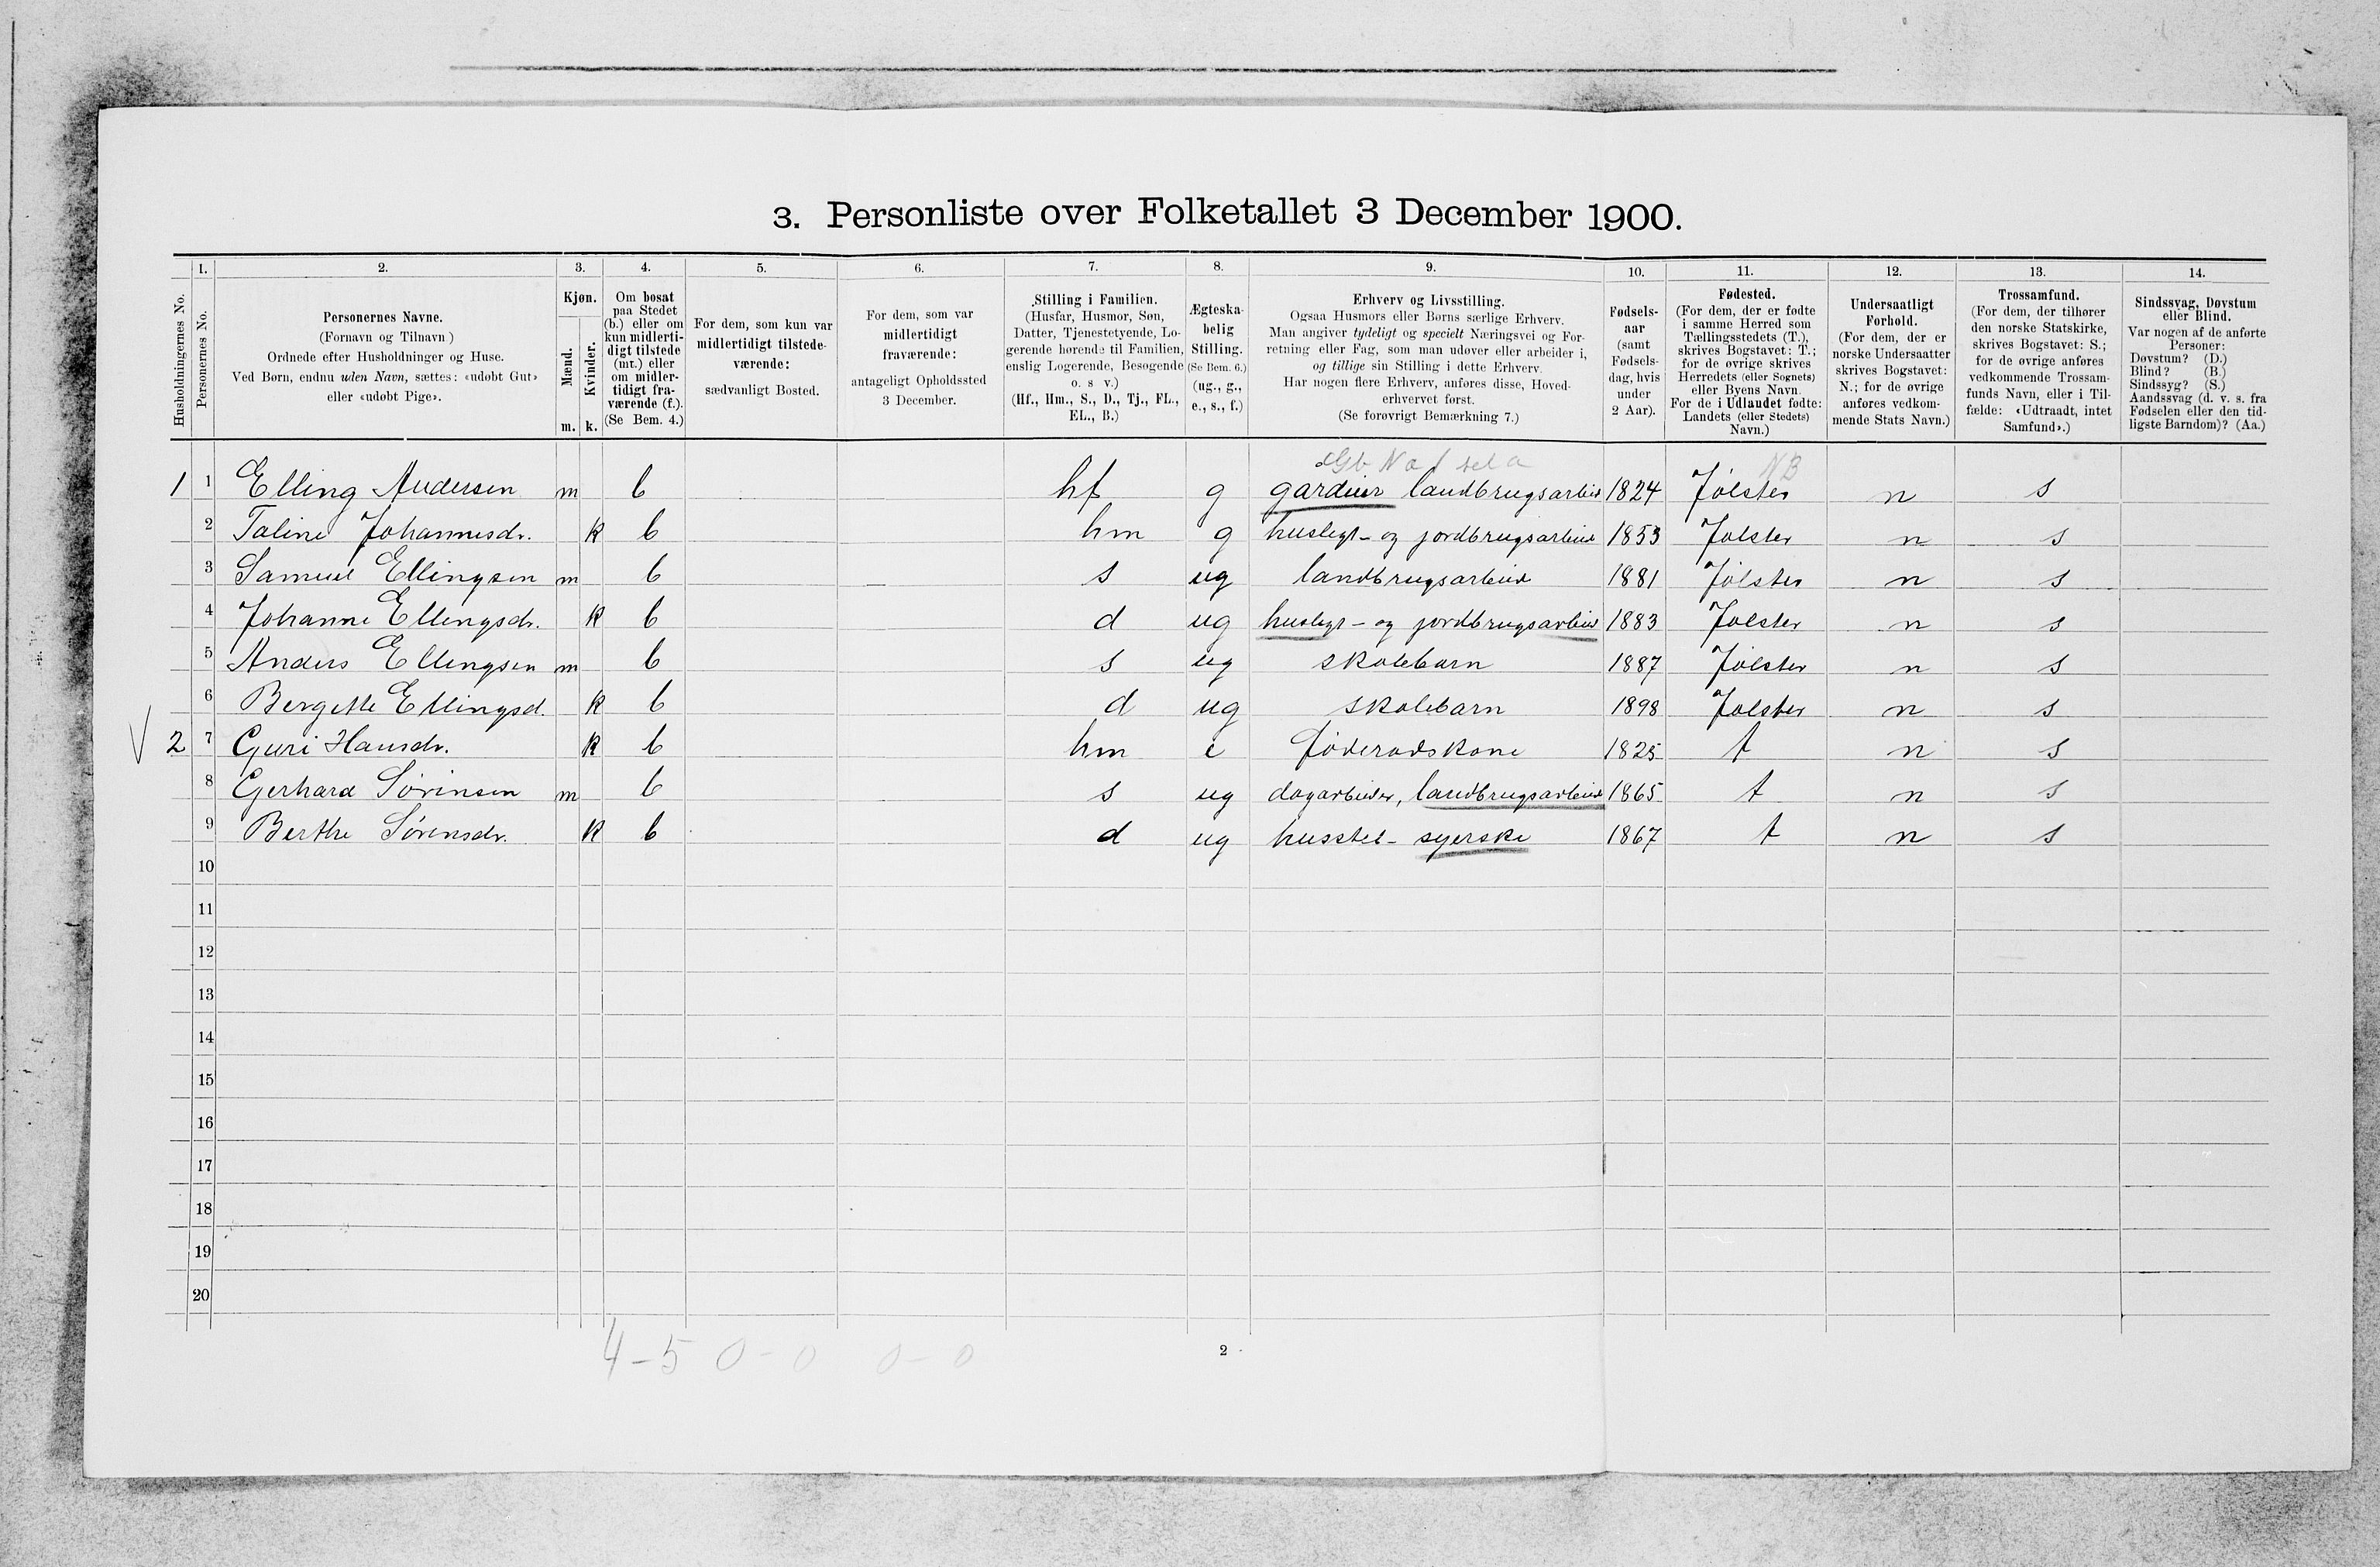 3. Personliste over Folketallet 3 December 1900.
1. 2. 3. 4. 5. 6. 7. 8. 9. 10. 11. 12. 13. 14.
Husholdningernes No.
Personernes No.
Personernes Navne.
(Fornavn og Tilnavn)
Ordnede efter Husholdninger og Huse.
Ved Børn, endnu uden Navn, sættes: «udøbt Gut»
eller «udøbt Pige».
Kjøn.
Mænd.
Kvinder.
m. k.
Om bosat
paa Stedet
(b.) eller om
kun midlerti-
digt tilstede
(mt.) eller
om midler-
tidigt fra-
værende (f.).
(Se Bem. 4.)
For dem, som kun var
midlertidigt tilstede-
værende:
sædvanligt Bosted.
For dem, som var
midlertidigt
fraværende:
antageligt Opholdssted
3 December.
Stilling i Familien.
(Husfar, Husmor, Søn,
Datter, Tjenestetyende, Lo-
gerende hørende til Familien,
enslig Logerende, Besøgende
o. s v.)
(Hf., Hm., S., D., Tj., FL.,
EL., B.)
Ægteska-
belig
Stilling.
(Se Bem. 6.)
(ug., g.,
e., s., f.)
Erhverv og Livsstilling.
Ogsaa Husmors eller Børns særlige Erhverv.
Man angiver tydeligt og specielt Næringsvei og For-
retning eller Fag, som man udøver eller arbeider i,
og tillige sin Stilling i dette Erhverv.
Har nogen flere Erhverv, anføres disse, Hoved-
erhvervet først.
(Se forøvrigt Bemærkning 7.)
Fødsels-
aar
(samt
Fødsels-
dag, hvis
under
2 Aar).
Fødested.
(For dem, der er fødte
i samme Herred som
Tællingsstedets (T.),
skrives Bogstavet: T.;
for de øvrige skrives
Herredets (eller Sognets)
eller Byens Navn.
For de i Udlandet fødte:
Landets (eller Stedets)
Navn.)
Undersaatligt
Forhold.
(For dem, der er
norske Undersaatter
skrives Bogstavet:
N.; for de øvrige
anføres vedkom-
mende Stats Navn.)
Trossamfund.
(For dem, der tilhører
den norske Statskirke,
skrives Bogstavet: S.;
for de øvrige anføres
vedkommende Trossam-
funds Navn, eller i Til-
fælde: «Udtraadt, intet
Samfund».)
Sindssvag, Døvstum
eller Blind.
Var nogen af de anførte
Personer:
Døvstum? (D.)
Blind? (B.)
Sindssyg? (S.)
Aandssvag (d. v. s. fra
Fødselen eller den tid-
ligste Barndom)? (Aa.)
NB
1 1 Elling Andersen m b hf g gardeier landbrugsarbeid 1824 Jølster n s
2 Taline Johannesdr. k b hm g husligt- og jordbrugsarbeid 1853 Jølster n s
3 Samuel Ellingsen m b s ug landbrugsarbeid 1881 Jølster n s
4 Johanne Ellingsdr. k b d ug husligt- og jordbrugsarbeid 1883 Jølster n s
5 Anders Ellingsen m b s ug skolebarn 1887 Jølster n s
6 Bergitte Ellingsd. k b d ug skolebarn 1898 Jølster n s
V 2 7 Guri Hansdr. k b hm e føderadskone 1825 t n s
8 Gerhard Sørensen m b s ug dagarbeider, landbrugsarbeid 1865 t n s
9 Berthe Sørensdr. k b d ug husstel- syerske 1867 t n s
10
11
12
13
14
15
16
17
18
19
20
4-5 0-0 0-0
2